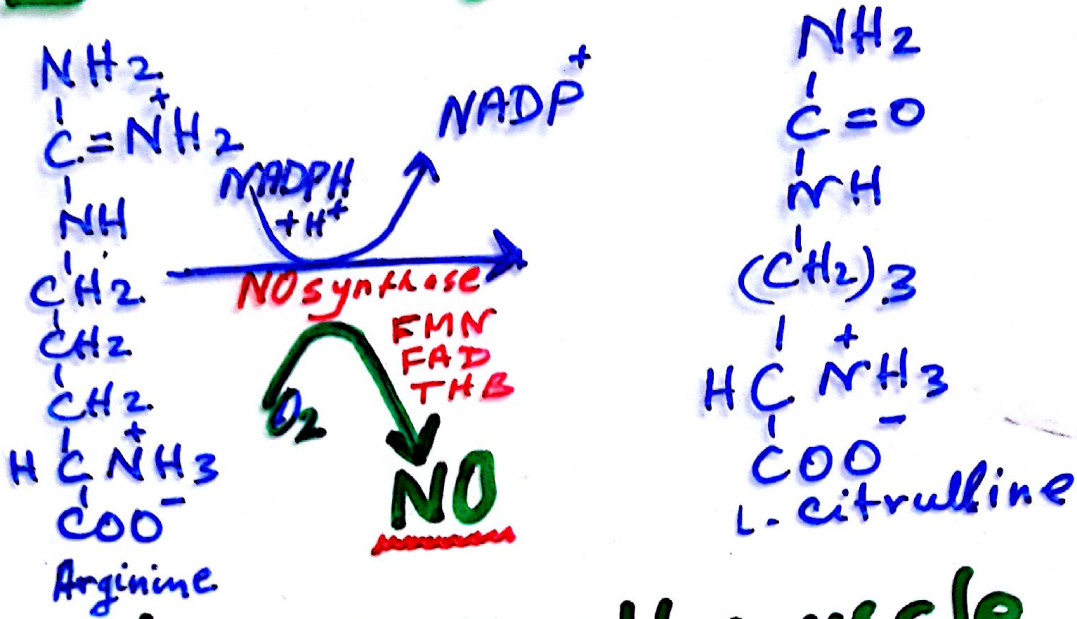 NH2
C=N+H2
NH
CH2
CH2
CH2
H C N+H3
COO-
Arginine
NADPH
+H+
NADP+
NO synthase
FMN
FAD
THB
O2
NO
NH2
C=O
NH
(CH2)3
H C N+H3
COO-
L-Citrulline